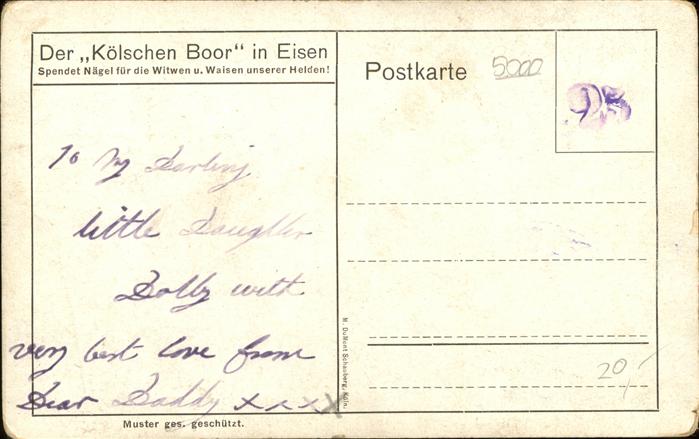 Der „Kölschen Boor“ in Eisen
Spendet Nägel für die Witwen u. Waisen unserer Helden!
Postkarte
5000
95
To My Darling
little Daughter
Dolly with
very best love from
Dear Daddy x x x X
20,-
M. DuMont Schauberg, Köln.
Muster ges. geschützt.